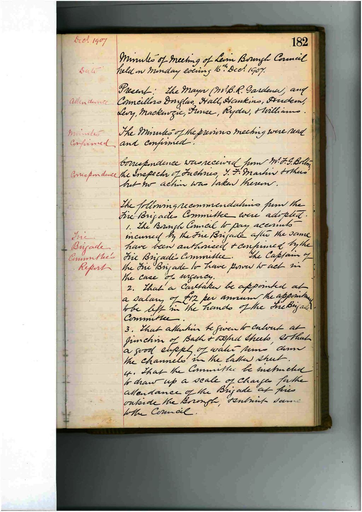 Decr 1907
182
Minutes of Meeting of Levin Borough Council
held on Monday evening 16th Decr 1907.
Date
Present: The Mayor (Mr B.R. Gardener, and
Attendance
Councillors Douglas, Hall, Hankins,
Levy, Mackenzie, Prince, Ryder, & Williams.
Minutes
confirmed
The Minutes of the previous meeting were read
and confirmed.
Correspondence was received from Mr F.G.
Correspondence
the Inspector of Factories, T. F. Martin & others
but no action was taken thereon.
The following recommendations from the
Fire Brigades Committee were adopted.
Fire
Brigade
Committee's
Report
1. The Borough Council to pay accounts
incurred by the Fire Brigade after the same
have been authorised & confirmed by the
Fire Brigade Committee. The Captain of
the Fire Brigade to have power to act in
the case of urgency.
2. That a Caretaker be appointed at
a salary of £12 per annum the appointment
to be left in the hands of the Fire Brigade
Committee.
3. That attention be given to culvert at
junction of Bath & Oxford Streets, so that
a good supply of water runs down
the channels in the latter street.
4. That the Committee be instructed
to draw up a scale of charges for the
attendance of the Brigade at fires
outside the Borough, & submit same
to the Council.